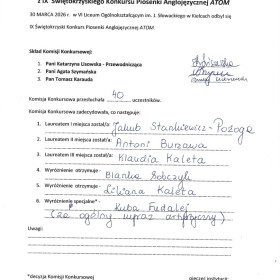 z IX Świętokrzyskiego Konkursu Piosenki Anglojęzycznej ATOM
30 MARCA 2026 r. w VI Liceum Ogólnokształcącym im. J. Słowackiego w Kielcach odbył się
IX Świętokrzyski Konkurs Piosenki Anglojęzycznej ATOM
Skład Komisji Konkursowej:
1. Pani Katarzyna Lisowska - Przewodnicząca
2. Pani Agata Szymańska
3. Pan Tomasz Karauda
Komisja Konkursowa przesłuchała 40 uczestników.
Komisja Konkursowa zadecydowała, co następuje:
1. Laureatem I miejsca został/a: Jakub Stankiewicz-Pożoga
2. Laureatem II miejsca został/a: Antoni Burzawa
3. Laureatem III miejsca został/a: Klaudia Kaleta
4. Wyróżnienie otrzymuje: Blanka Sobczyk
5. Wyróżnienie otrzymuje: Liliana Kaleta
6. Wyróżnienie specjalne* - Kuba Fudalej
(za ogólny wyraz artystyczny)
Uwagi:
*decyzja Komisji Konkursowej
pieczęć instytucji: